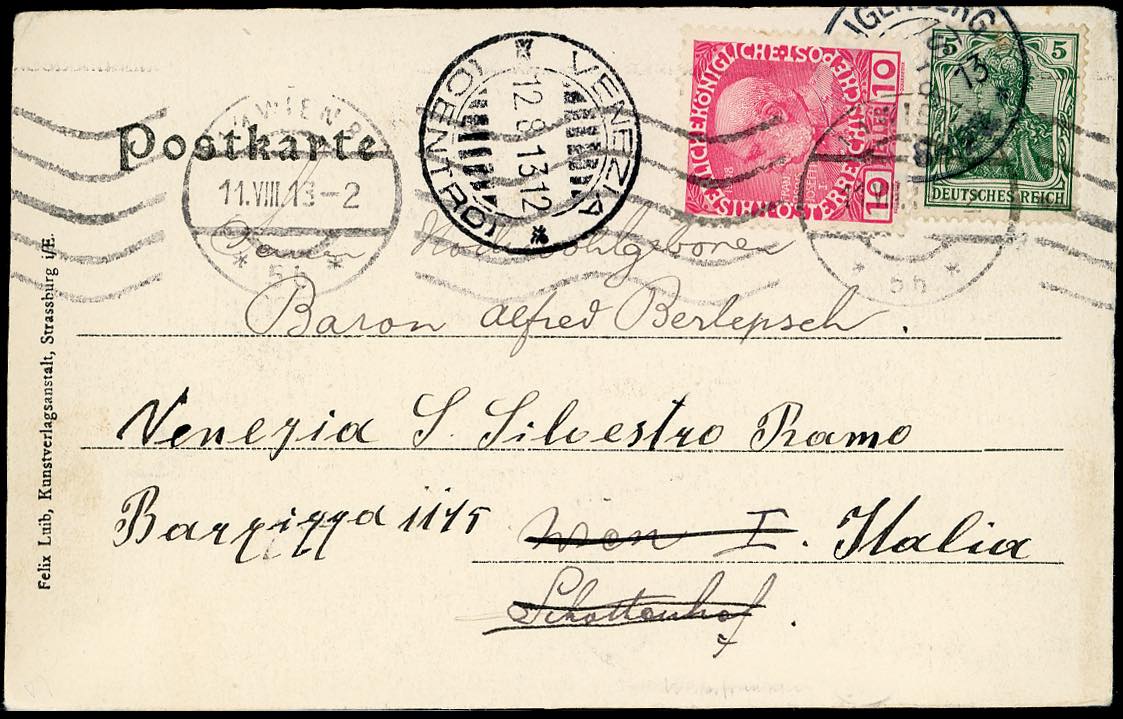 Postkarte
WIEN
11.VIII.13-2
VENEZIA
12.8.13 12
(CENTRO)
KAISERLICHE KÖNIGLICHE ÖSTERREICHISCHE POST
10 HELLER 10
5 5
DEUTSCHES REICH
13
Hochwohlgeboren
Baron Alfred Berlepsch.
Venezia S. Silvestro Ramo
Barzizza 1175
Wien I. Italia
Schottenhof.
Felix Luib, Kunstverlagsanstalt, Strassburg i/E.